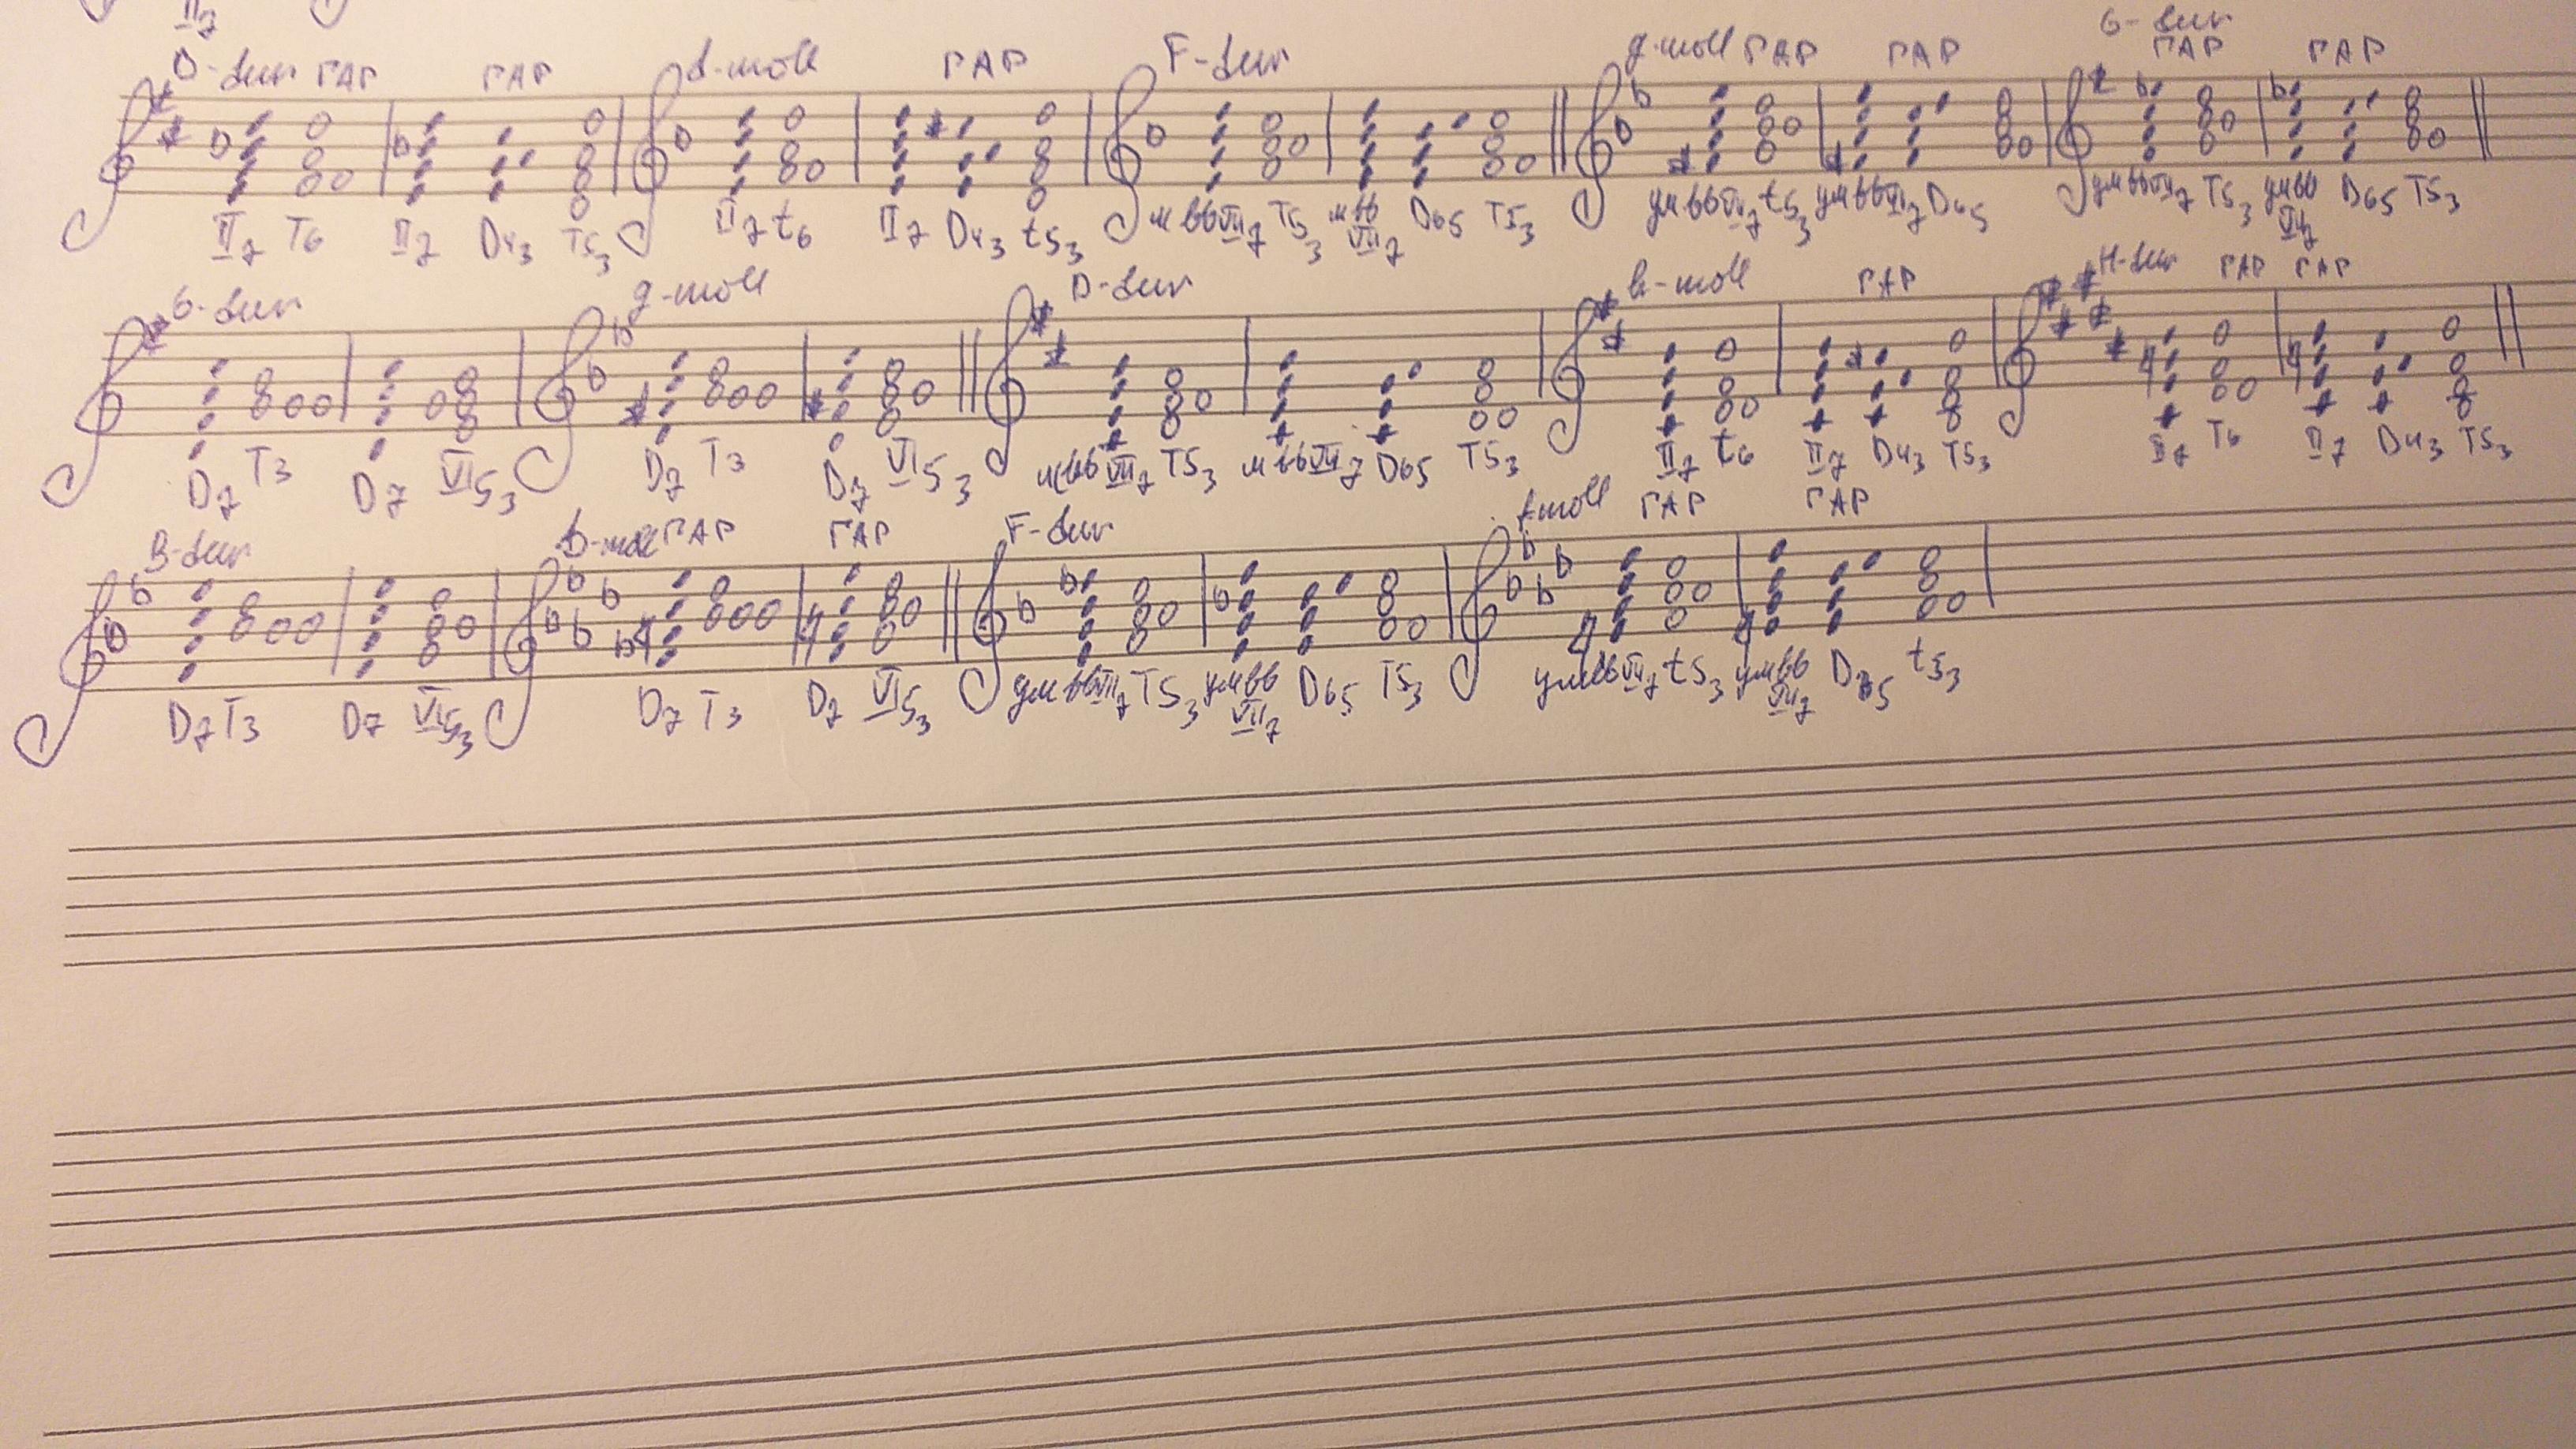 II7
D-dur ГАР ГАР d-moll ГАР F-dur g-moll ГАР ГАР G-dur ГАР ГАР
II7 T6 II7 D43 T53 II7 t6 II7 D43 t53 мввVII7 T53 мввVII7 D65 T53 умввVII7 t53 умввVII7 D65 умввVII7 T53 умввVII7 D65 T53
G-dur g-moll D-dur h-moll ГАР H-dur ГАР ГАР
D7 T3 D7 VI53 D7 T3 D7 VI53 мввVII7 T53 мввVII7 D65 T53 II7 t6 II7 D43 T53 II7 T6 II7 D43 T53
B-dur b-moll ГАР ГАР F-dur f-moll ГАР ГАР
D7 T3 D7 VI53 D7 T3 D7 VI53 умввVII7 T53 умввVII7 D65 T53 умввVII7 t53 умввVII7 D65 t53